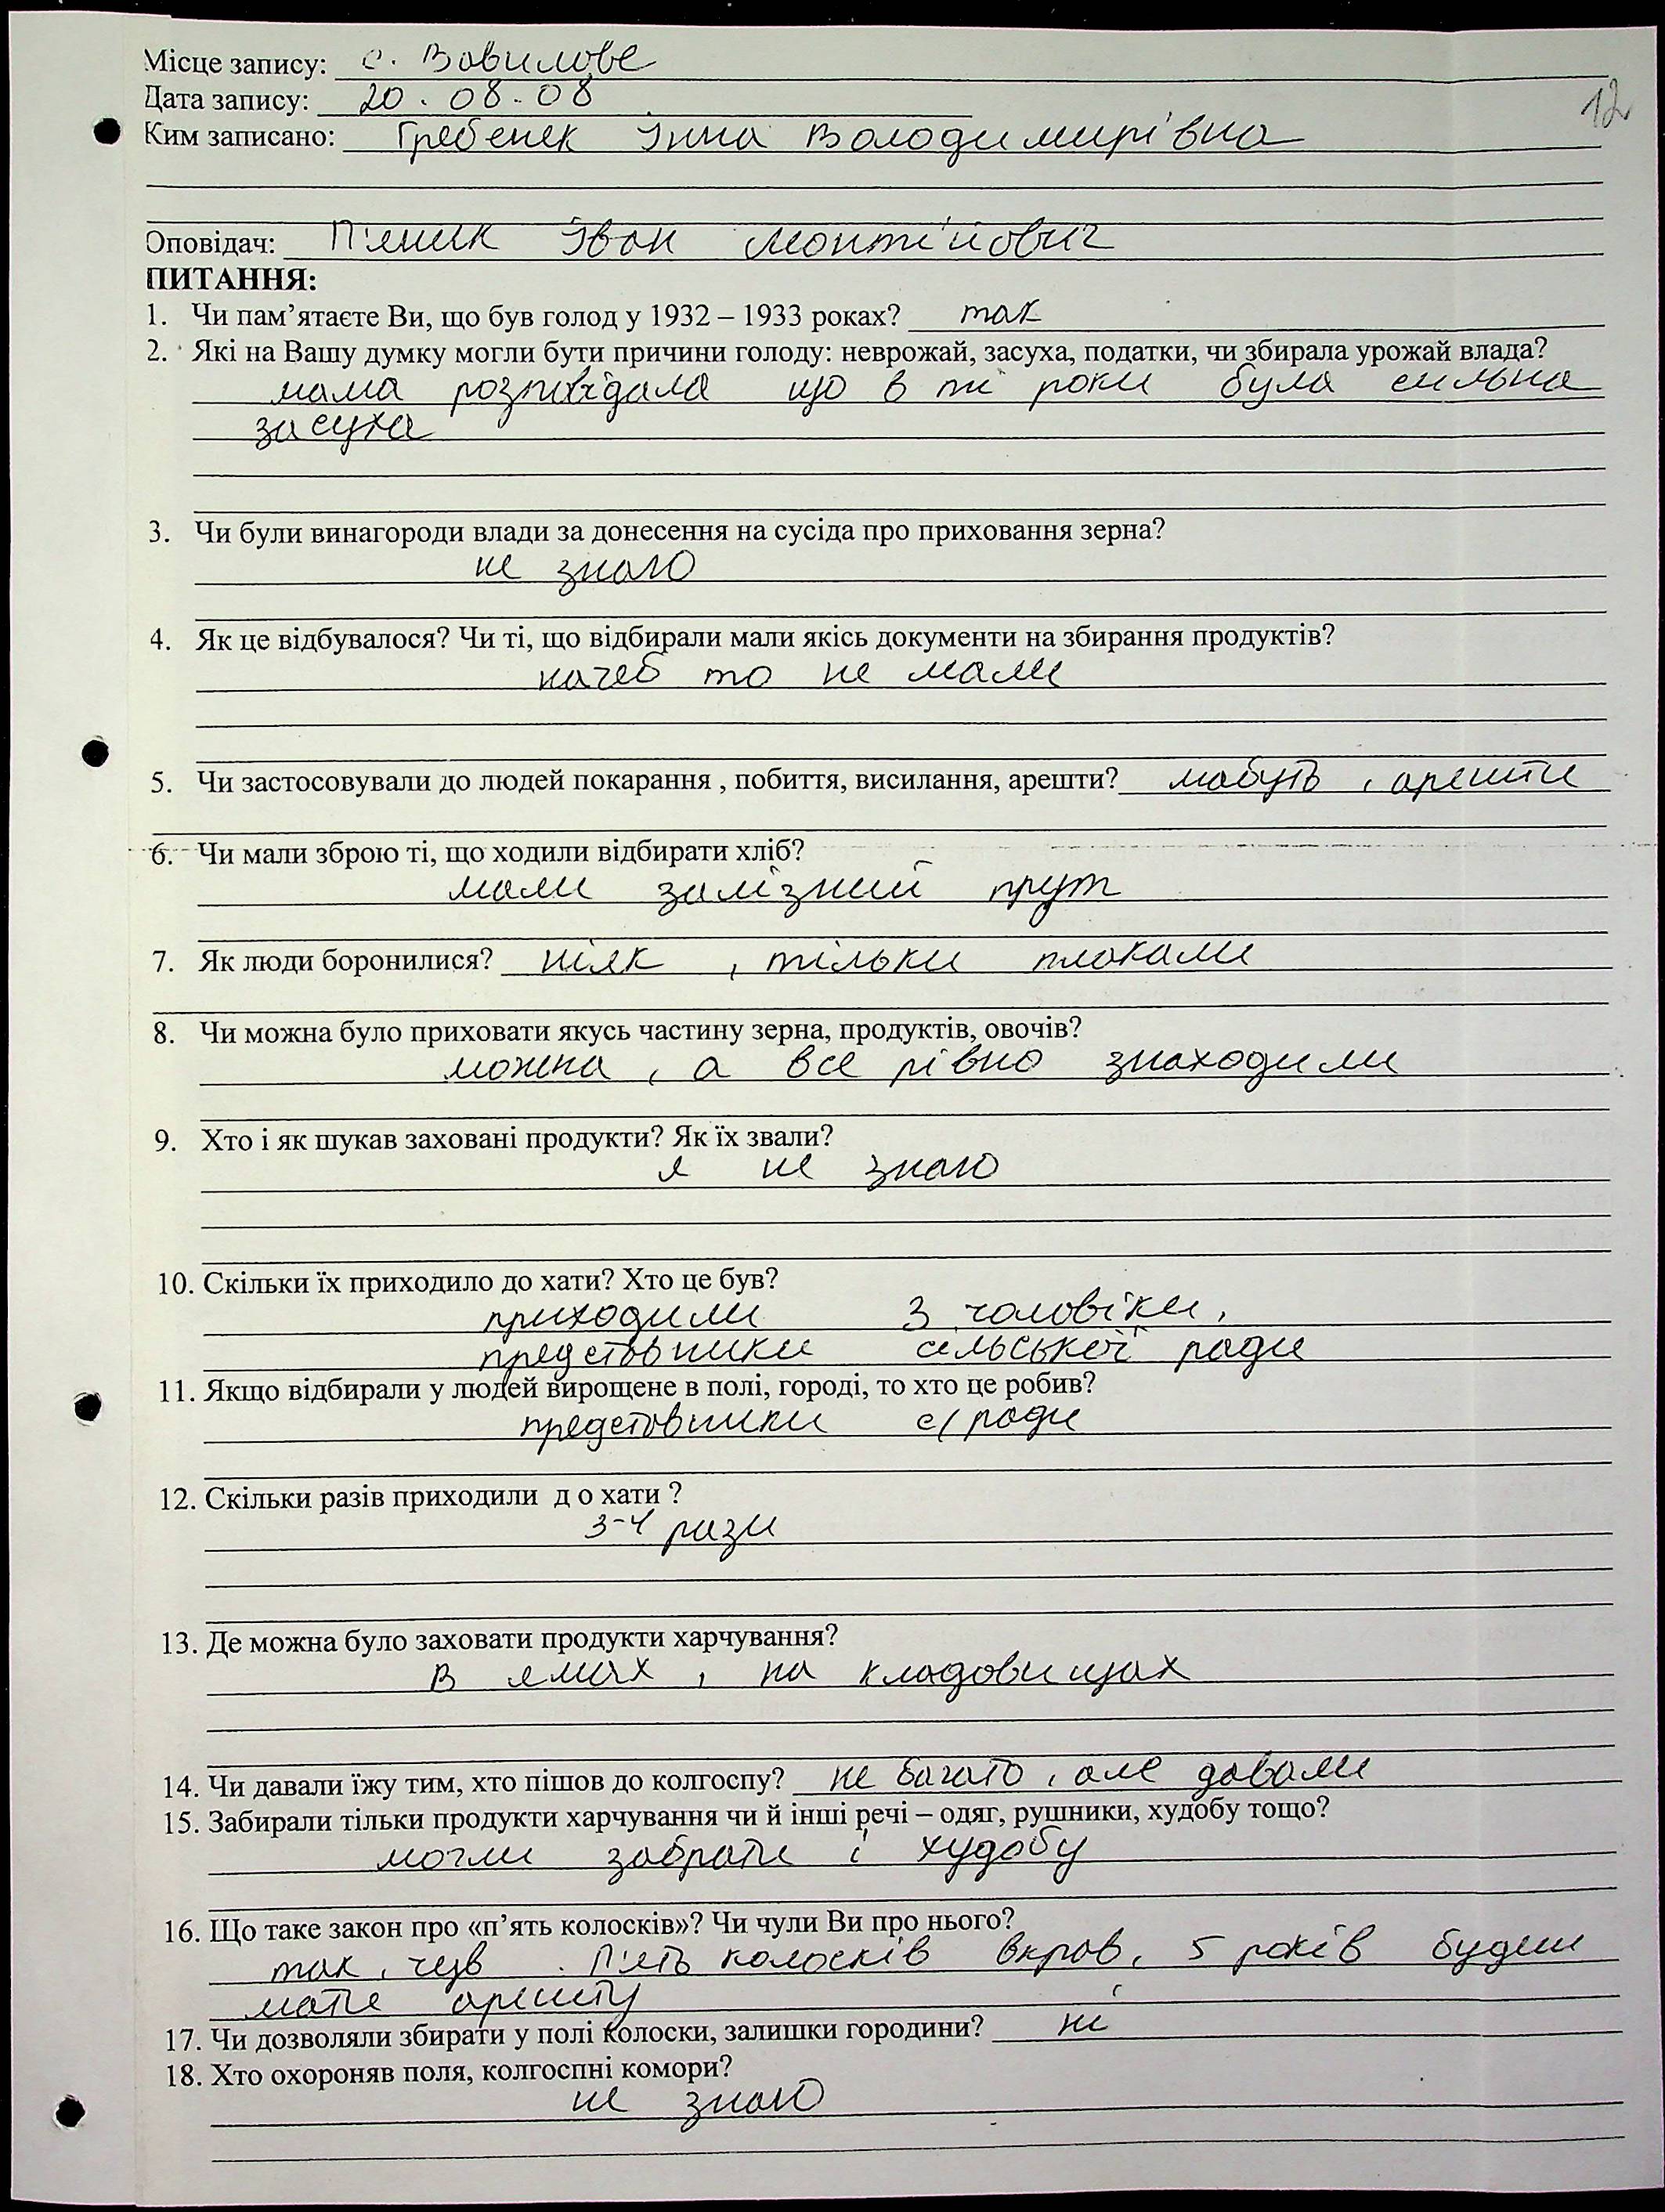 12
Місце запису: с. Вавилове
Дата запису: 20.08.08
Ким записано: Гребенек Інна Володимирівна
Оповідач: П'яник Іван Монтійович
ПИТАННЯ:
1. Чи пам’ятаєте Ви, що був голод у 1932 – 1933 роках? так
2. Які на Вашу думку могли бути причини голоду: неврожай, засуха, податки, чи збирала урожай влада?
мама розповідала що в ті роки була сильна
засуха
3. Чи були винагороди влади за донесення на сусіда про приховання зерна?
не знаю
4. Як це відбувалося? Чи ті, що відбирали мали якісь документи на збирання продуктів?
начеб то не мали
5. Чи застосовували до людей покарання , побиття, висилання, арешти? мабуть , арешти
6. Чи мали зброю ті, що ходили відбирати хліб?
мали залізний прут
7. Як люди боронилися? ніяк , тільки плакали
8. Чи можна було приховати якусь частину зерна, продуктів, овочів?
можна , а все рівно знаходили
9. Хто і як шукав заховані продукти? Як їх звали?
я не знаю
10. Скільки їх приходило до хати? Хто це був?
приходили 3 чоловіки,
представники сільської ради
11. Якщо відбирали у людей вирощене в полі, городі, то хто це робив?
представники с/ради
12. Скільки разів приходили д о хати ?
3-4 рази
13. Де можна було заховати продукти харчування?
в ямах , на кладовищах
14. Чи давали їжу тим, хто пішов до колгоспу? не багато , але давали
15. Забирали тільки продукти харчування чи й інші речі – одяг, рушники, худобу тощо?
могли забрати і худобу
16. Що таке закон про «п’ять колосків»? Чи чули Ви про нього?
так, чув . П'ять колосків вкрав, 5 років будеш
мати арешту
17. Чи дозволяли збирати у полі колоски, залишки городини? ні
18. Хто охороняв поля, колгоспні комори?
не знаю